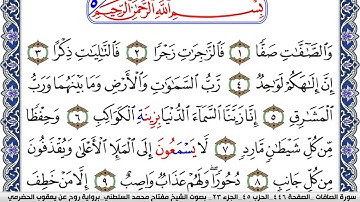 بِسْمِ اللَّهِ الرَّحْمَٰنِ الرَّحِيمِ
وَالصَّٰفَّٰتِ صَفًّا ١ فَالزَّٰجِرَٰتِ زَجْرًا ٢ فَالتَّٰلِيَٰتِ ذِكْرًا ٣
إِنَّ إِلَٰهَكُمْ لَوَٰحِدٌ ٤ رَّبُّ السَّمَٰوَٰتِ وَالْأَرْضِ وَمَا بَيْنَهُمَا وَرَبُّ
الْمَشَٰرِقِ ٥ إِنَّا زَيَّنَّا السَّمَآءَ الدُّنْيَا بِزِينَةِ الْكَوَاكِبِ ٦ وَحِفْظًا
مِّن كُلِّ شَيْطَٰنٍ مَّارِدٍ ٧ لَّا يَسْمَعُونَ إِلَى الْمَلَإِ الْأَعْلَىٰ وَيُقْذَفُونَ
مِن كُلِّ جَانِبٍ ٨ دُحُورًا وَلَهُمْ عَذَابٌ وَاصِبٌ ٩ إِلَّا مَنْ خَطِفَ
سورة الصافات الصفحة ٤٤٦ الحزب ٤٥ الجزء ٢٣ بصوت الشيخ مفتاح محمد السلطني برواية روح عن يعقوب الحضرمي